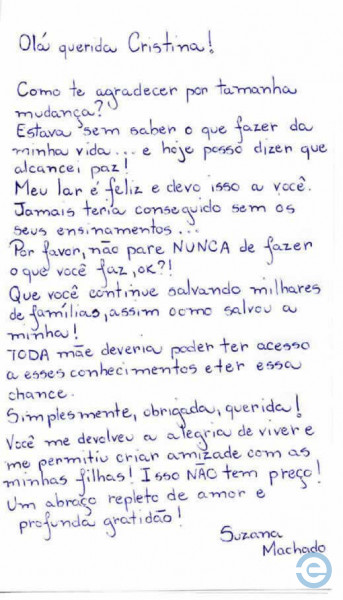 Olá querida Cristina!
Como te agradecer por tamanha
mudança?
Estava sem saber o que fazer da
minha vida... e hoje posso dizer que
alcancei paz!
Meu lar é feliz e devo isso a você.
Jamais teria conseguido sem os
seus ensinamentos...
Por favor, não pare NUNCA de fazer
o que você faz, ok?!
Que você continue salvando milhares
de famílias, assim como salvou a
minha!
TODA mãe deveria poder ter acesso
a esses conhecimentos e ter essa
chance.
Simplesmente, obrigada, querida!
Você me devolveu a alegria de viver e
me permitiu criar amizade com as
minhas filhas! Isso NÃO tem preço!
Um abraço repleto de amor e
profunda gratidão!
Suzana
Machado